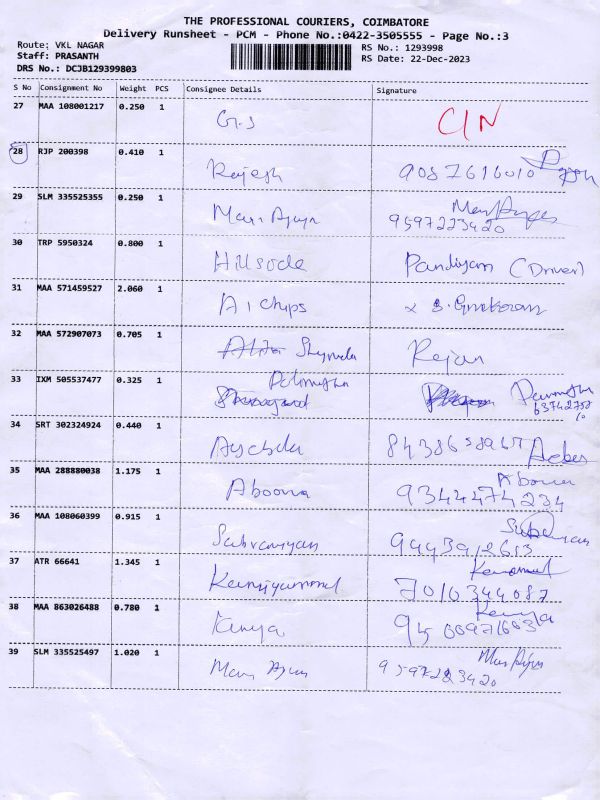 THE PROFESSIONAL COURIERS, COIMBATORE
Delivery Runsheet - PCM - Phone No.:0422-3505555 - Page No.:3
Route: VKL NAGAR
Staff: PRASANTH
DRS No.: DCJB129399803
RS No.: 1293998
RS Date: 22-Dec-2023
S No Consignment No Weight PCS Consignee Details Signature
27 MAA 108001217 0.250 1 G.S C/N
28 RJP 200398 0.410 1 Rajesh 9087616010
29 SLM 335525355 0.250 1 Mari 9597223420
30 TRP 5950324 0.800 1 Hillsode Pandiyan (Driver)
31 MAA 571459527 2.060 1 A1 chips
32 MAA 572907073 0.705 1 Rejan
33 IXM 505537477 0.325 1
34 SRT 302324924 0.440 1
35 MAA 288880038 1.175 1 Aboona 9344474234
36 MAA 108060399 0.915 1 9443912613
37 ATR 66641 1.345 1 7010344087
38 MAA 863026488 0.780 1 Kanya
39 SLM 335525497 1.020 1 9597223420